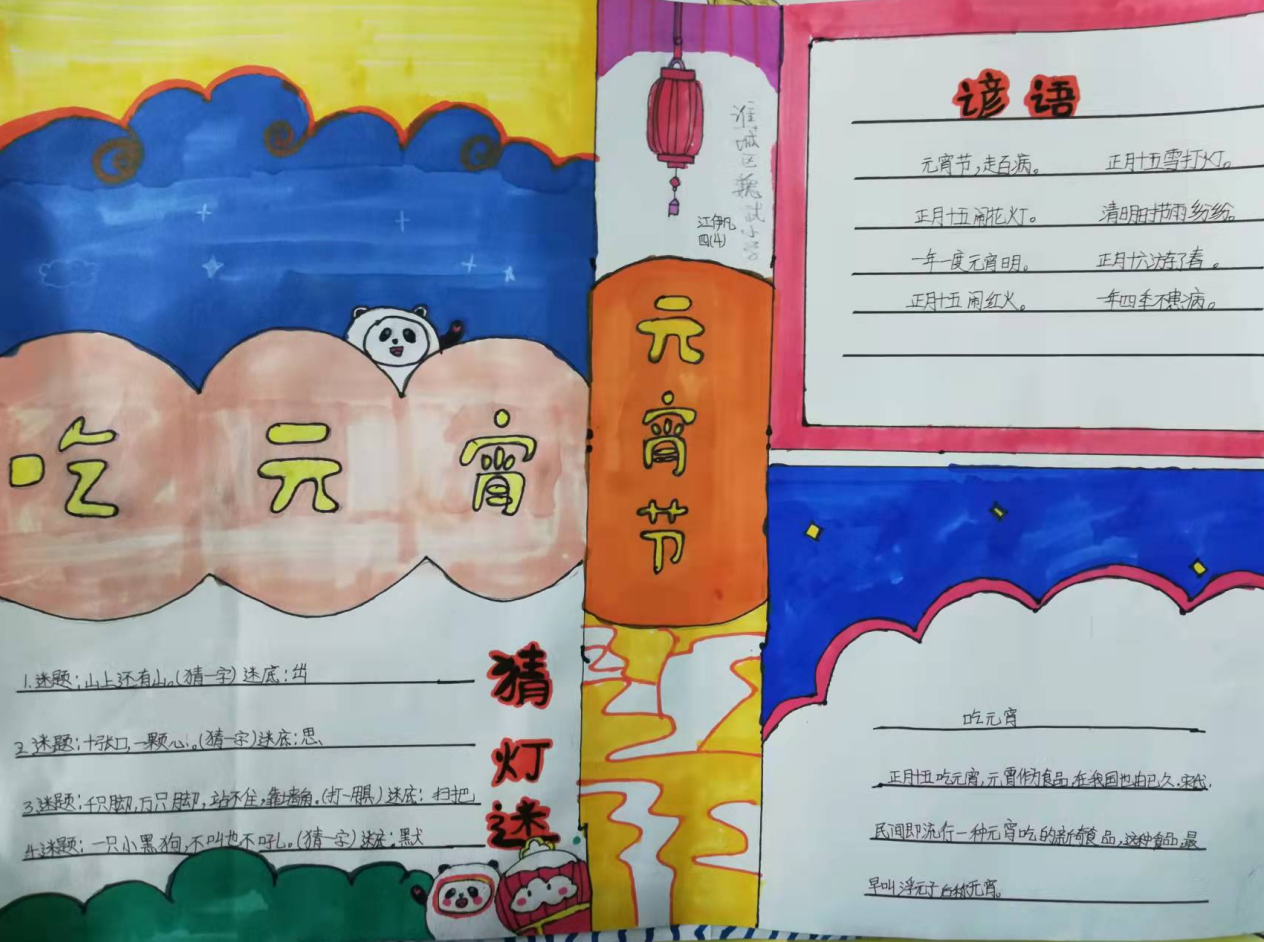 吃元宵
1.迷题：山上还有山。(猜一字)迷底：出
2.迷题：十张口,一颗心。(猜一字)迷底：思、
3.迷题：千只脚,万只脚,站不住,靠墙角。(打一用具)迷底：扫把
4.迷题：一只小黑狗,不叫也不吼。(猜一字)迷底：默
猜灯迷
淮城区魏武小学
江伊凡
四(4)
元宵节
谚语
元宵节,走百病。 正月十五雪打灯。
正月十五闹花灯。 清明时节雨纷纷。
一年一度元宵明。 正月十六游了春。
正月十五闹红火。 一年四季不患病。
吃元宵
正月十五吃元宵,元霄作为食品,在我国也由已久,宋代,
民间即流行一种元宵吃的新奇食品,这种食品,最
早叫浮元子后称元宵。